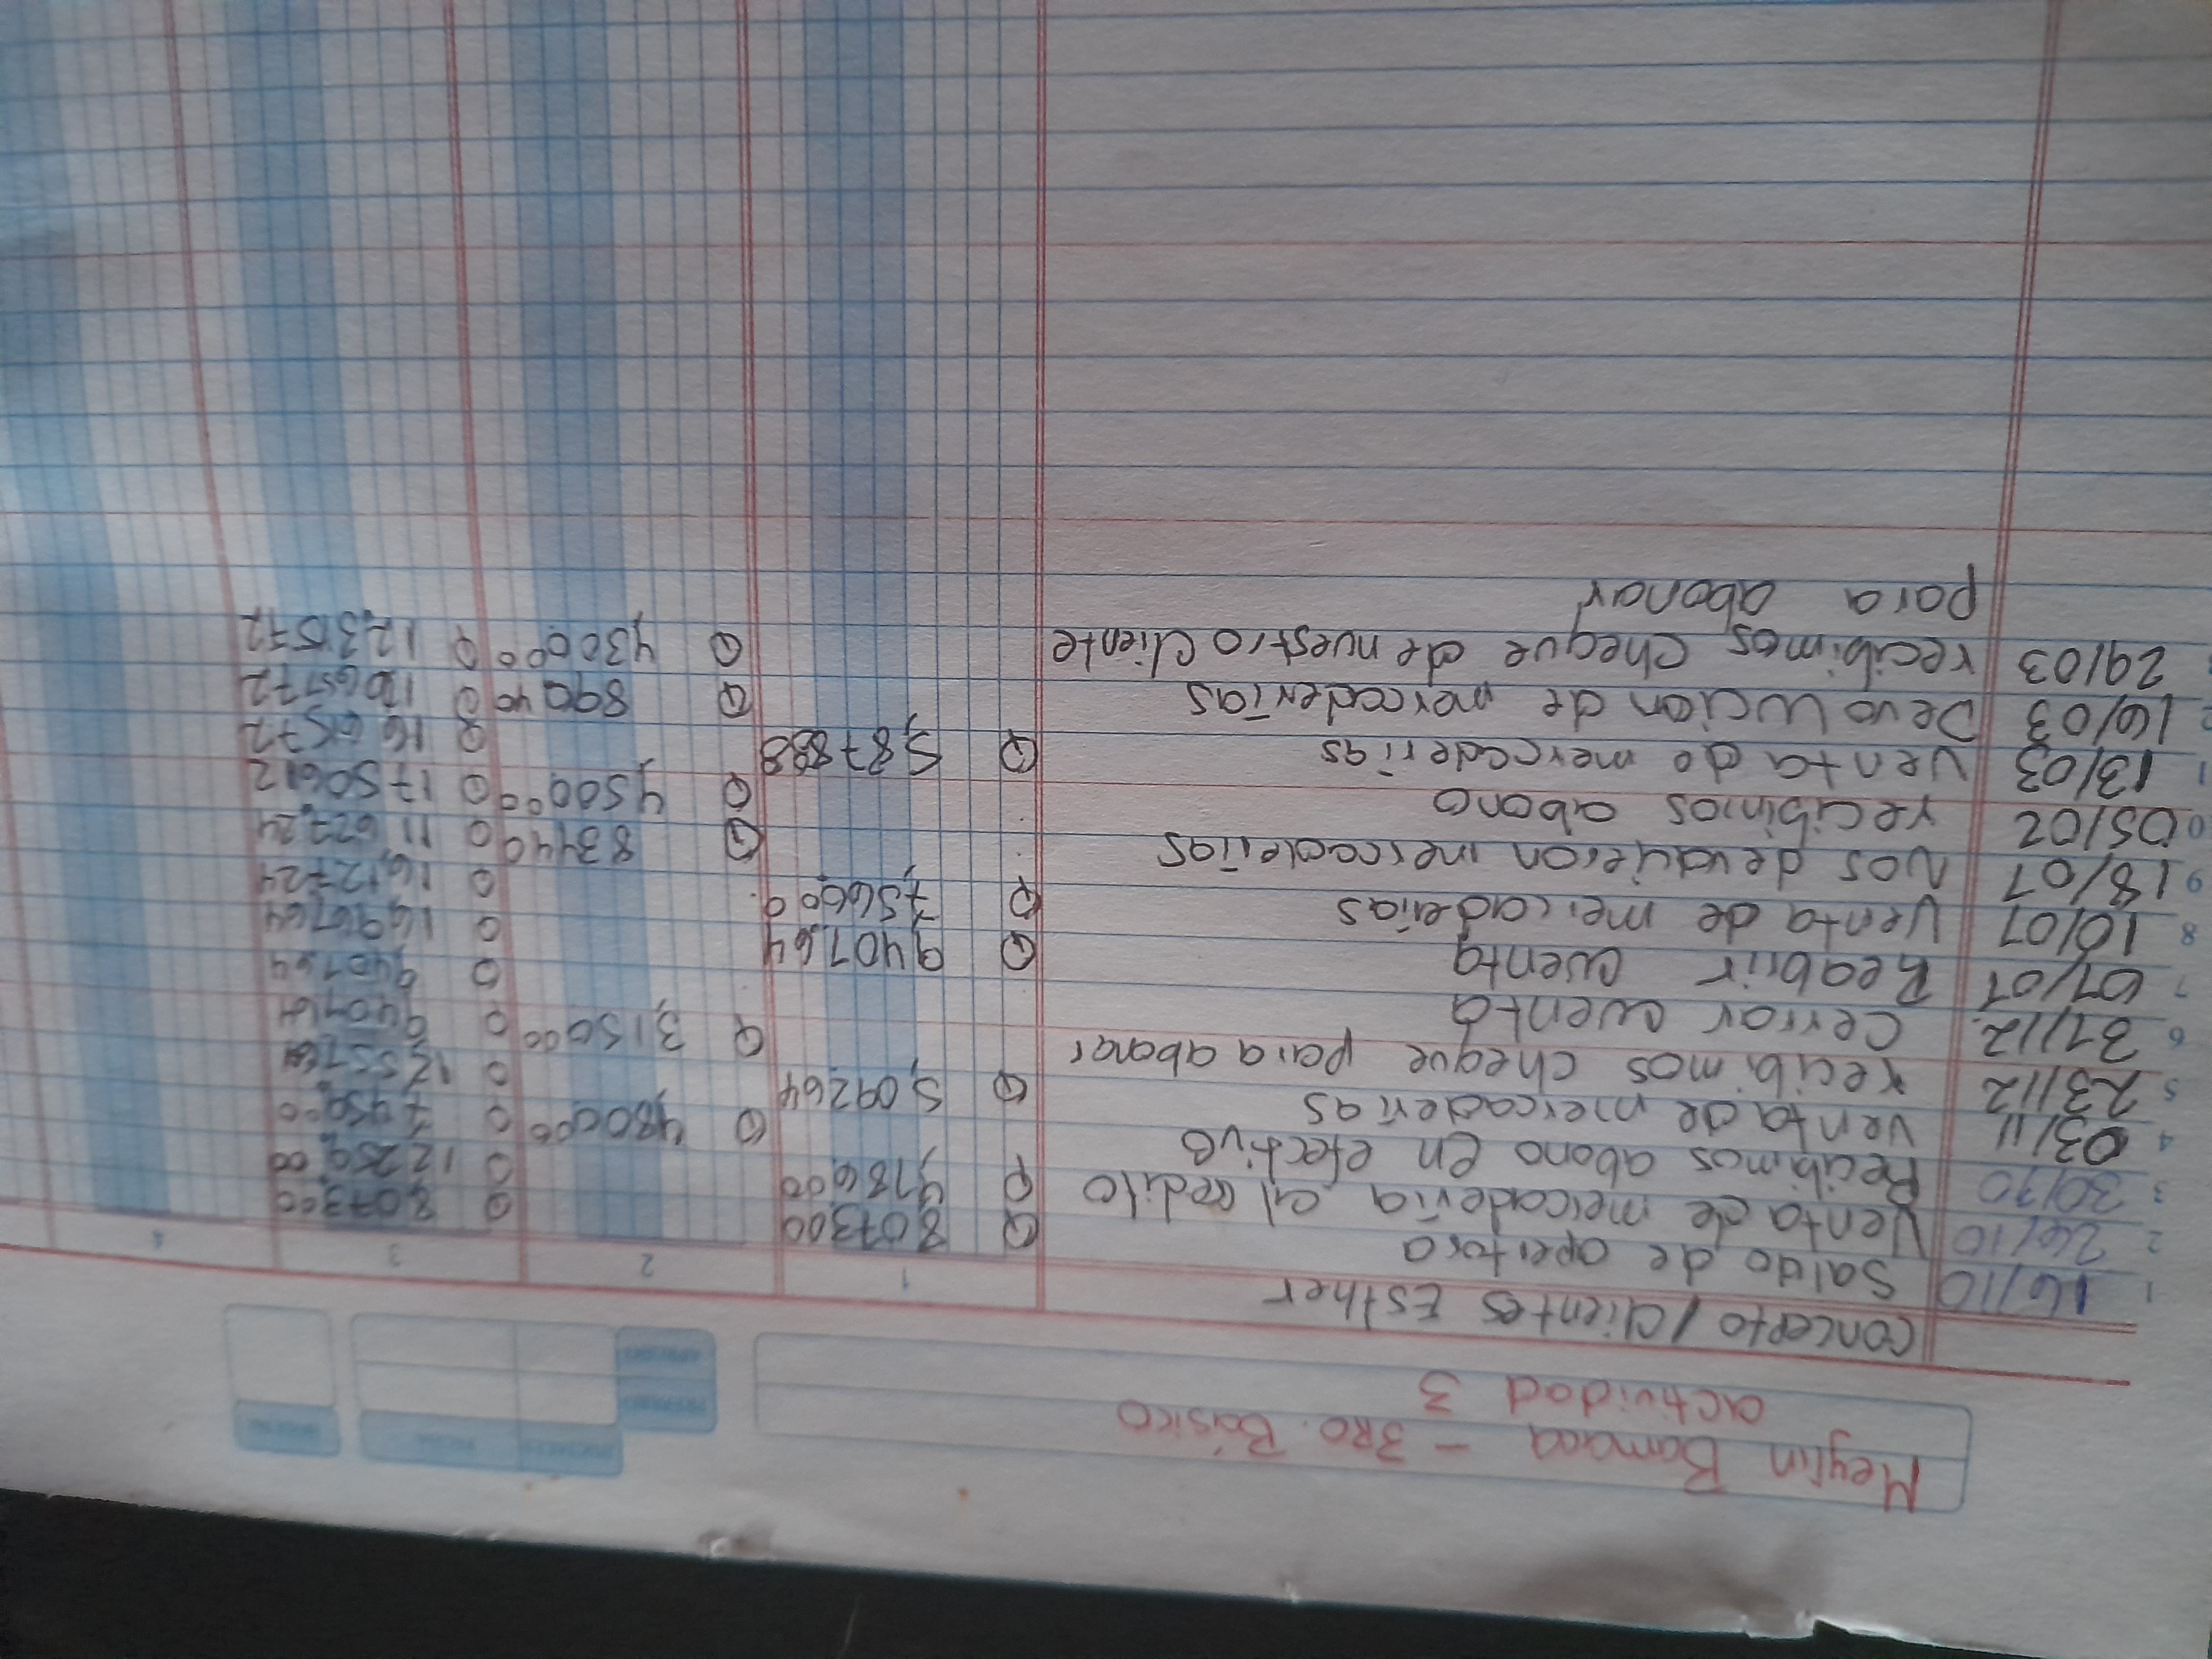 Meylin Bamaca - 3RO. Básico
actividad 3
concepto / clientes Esther
1 2 3 4
1 16/10 Saldo de apertora Q 8,073.00 Q 8,073.00
2 26/10 Venta de mercadería al credito Q 4,186.00 Q 12,259.00
3 30/10 Recibimos abono en efectivo Q 4,800.00 Q 7,459.00
4 03/11 Venta de mercaderias Q 5,092.64 Q
5 23/12 recibimos cheque para abonar Q 3,150.00 Q
6 31/12 Cerrar cuenta Q 9,401.64
7 01/01 Reabrir cuenta Q 9,401.64 Q 16,967.64
8 10/01 Venta de mercaderias Q 7,566.00 Q 16,127.24
9 18/01 Nos devolvieron mercaderias Q 834.40 Q 11,627.24
05/02 recibimos abono Q 4,500.00 Q 17,506.12
13/03 Venta de mercaderias Q 5,878.88 Q 16,615.72
16/03 Devolucion de mercaderias Q 890.40 Q
29/03 recibimos cheque de nuestro cliente Q 4,300.00 Q 12,315.72
para abonar